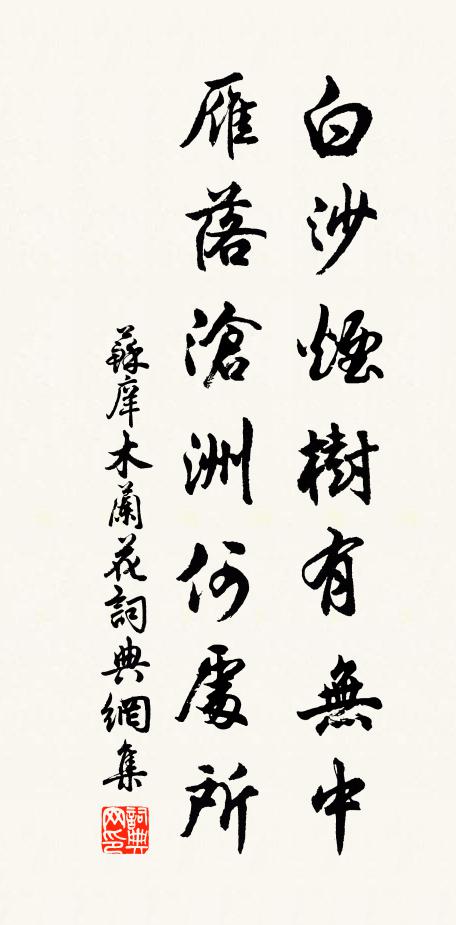 白沙煙樹有無中
雁落滄洲何處所
蘇庠木蘭花詞典網集
詞典網印